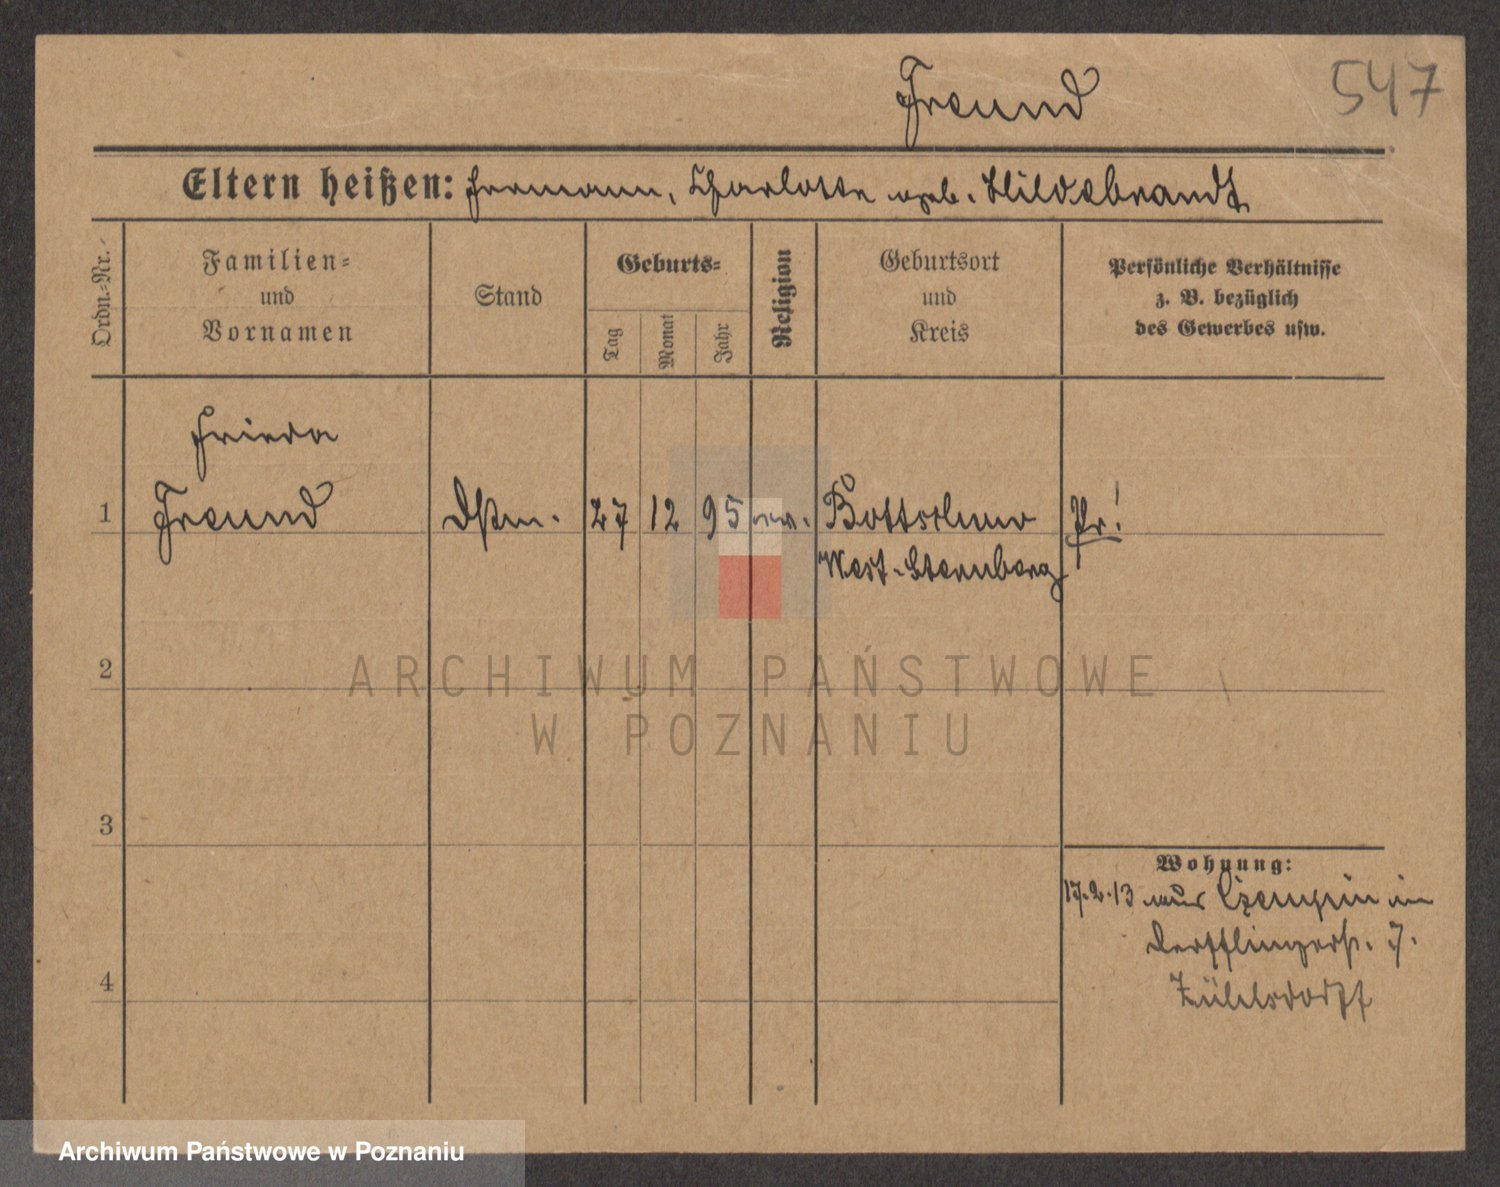 Freund
547
Eltern heißen: Hermann, Charlotte geb. Hildebrandt
Ordn.-Nr.
Familien-
und
Vornamen
Stand
Geburts-
Tag
Monat
Jahr
Religion
Geburtsort
und
Kreis
Persönliche Verhältnisse
z. B. bezüglich
des Gewerbes usw.
Frieda
1 Freund Dstm. 27 12 95 ev. Pr!
West-Sternberg
2
ARCHIWUM PAŃSTWOWE
W POZNANIU
3
Wohnung:
17.2.13 aus Czempin in
Derfflingerstr. 7.
4
Zühlsdorff
Archiwum Państwowe w Poznaniu